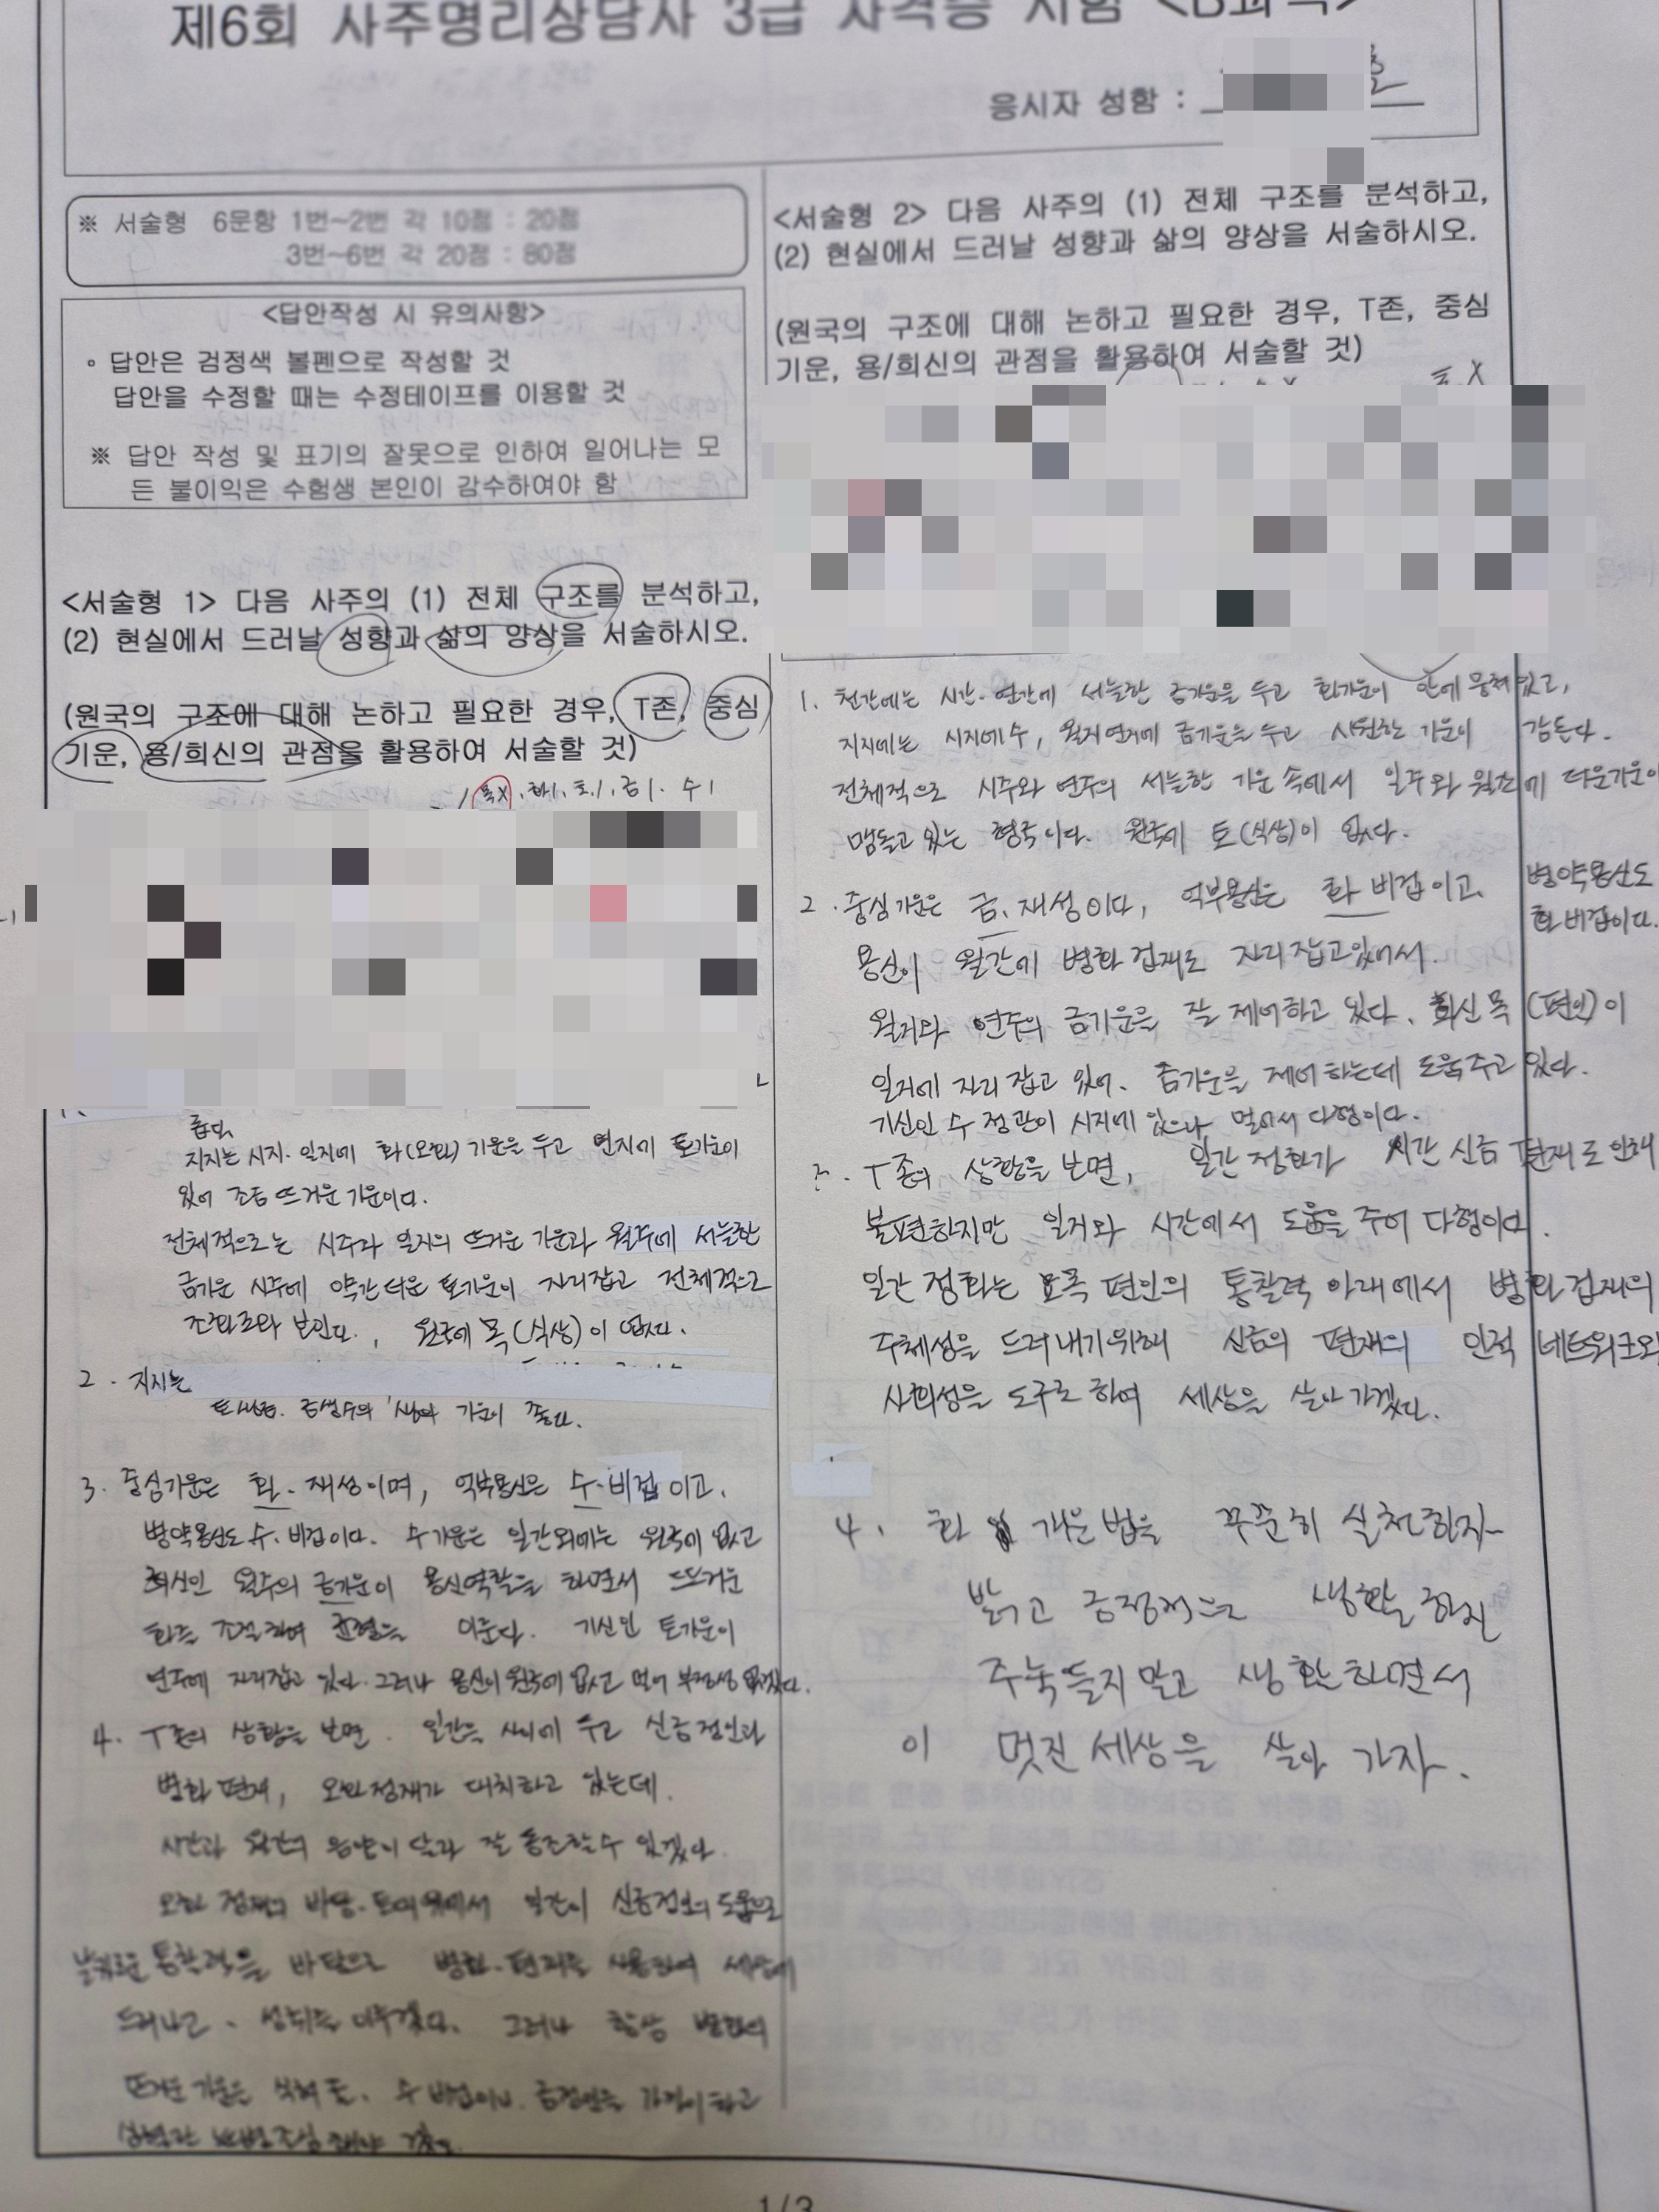 제6회 사주명리상담사 3급 자격증 시험
응시자 성함 :
※ 서술형 6문항 1번~2번 각 10점 : 20점
3번~6번 각 20점 : 80점
<답안작성 시 유의사항>
◦ 답안은 검정색 볼펜으로 작성할 것
답안을 수정할 때는 수정테이프를 이용할 것
※ 답안 작성 및 표기의 잘못으로 인하여 일어나는 모
든 불이익은 수험생 본인이 감수하여야 함
<서술형 1> 다음 사주의 (1) 전체 구조를 분석하고,
(2) 현실에서 드러날 성향과 삶의 양상을 서술하시오.
(원국의 구조에 대해 논하고 필요한 경우, T존, 중심
기운, 용/희신의 관점을 활용하여 서술할 것)
목X. 화1. 토1. 금1. 수1
지지는 시지. 일지에 화(오화) 기운을 두고 연지에 토기운이
있어 조금 뜨거운 기운이다.
전체적으로는 시주와 일지의 뜨거운 기운과 월주에 서늘한
금기운 시주에 약간 더운 토기운이 자리잡고 전체적으로
조화로와 보인다. , 원국에 목(식상)이 없다.
2. 지지는
토생금. 금생수의 기운이 좋다.
3. 중심기운은 화. 재성이며, 억부용신은 수. 비겁이고.
병약용신도 수. 비겁이다. 수기운은 일간외에는 원국에 없고
희신인 월주의 금기운이 용신역할을 하면서 뜨거운
화를 조절하여 균형을 이룬다. 기신인 토기운이
연주에 자리잡고 있다. 그러나 용신이 원국에 없고 멀어
4. T존의 상황을 보면. 일간을 사이에 두고 신금정인과
병화 편재, 오화정재가 대치하고 있는데.
시간과 월간의 음양이 달라 잘 통조할수 있겠다.
오화 정재의 바탕. 일간이 신금정인의 도움으로
통찰력을 바탕으로 병화. 편재를 사용하여 세상에
드러나고. 성취를 이루겠다. 그러나 항상 병화의
뜨거운 기운을 수 비겁이나 금정인을 가까이 하고
<서술형 2> 다음 사주의 (1) 전체 구조를 분석하고,
(2) 현실에서 드러날 성향과 삶의 양상을 서술하시오.
(원국의 구조에 대해 논하고 필요한 경우, T존, 중심
기운, 용/희신의 관점을 활용하여 서술할 것)
토X
1. 천간에는 시간. 연간에 서늘한 금기운을 두고 화기운이 안에 뭉쳐있고,
지지에는 시지에 수, 월지 연지에 금기운을 두고 시원한 기운이 감돈다.
전체적으로 시주와 연주의 서늘한 기운 속에서 일주와 월간에 더운기운이
맴돌고 있는 형국이다. 원국에 토(식상)이 없다.
2. 중심기운은 금. 재성이다, 억부용신은 화 비겁이고. 병약용신도
화 비겁이다.
용신이 월간에 병화 겁재로 자리잡고있어서.
월지와 연주의 금기운을 잘 제어하고 있다. 희신 목(편인)이
일지에 자리 잡고 있어. 금기운을 제어하는데 도움주고 있다.
기신인 수 정관이 시지에 있으나 멀어서 다행이다.
3. T존의 상황을 보면, 일간 정화가 시간 신금 편재로 인해
불편하지만 일지와 시간에서 도움을 주어 다행이다.
일간 정화는 묘목 편인의 통찰력 아래에서 병화 겁재의
주체성을 드러내기위해 신금의 편재의 인적 네트워크와
사회성을 도구로 하여 세상을 살아 가겠다.
4. 화 개운법을 꾸준히 실천한자~
밝고 긍정적으로 생활 한지
주눅들지 말고 생활하면서
이 멋진 세상을 살아 가자.
1/3